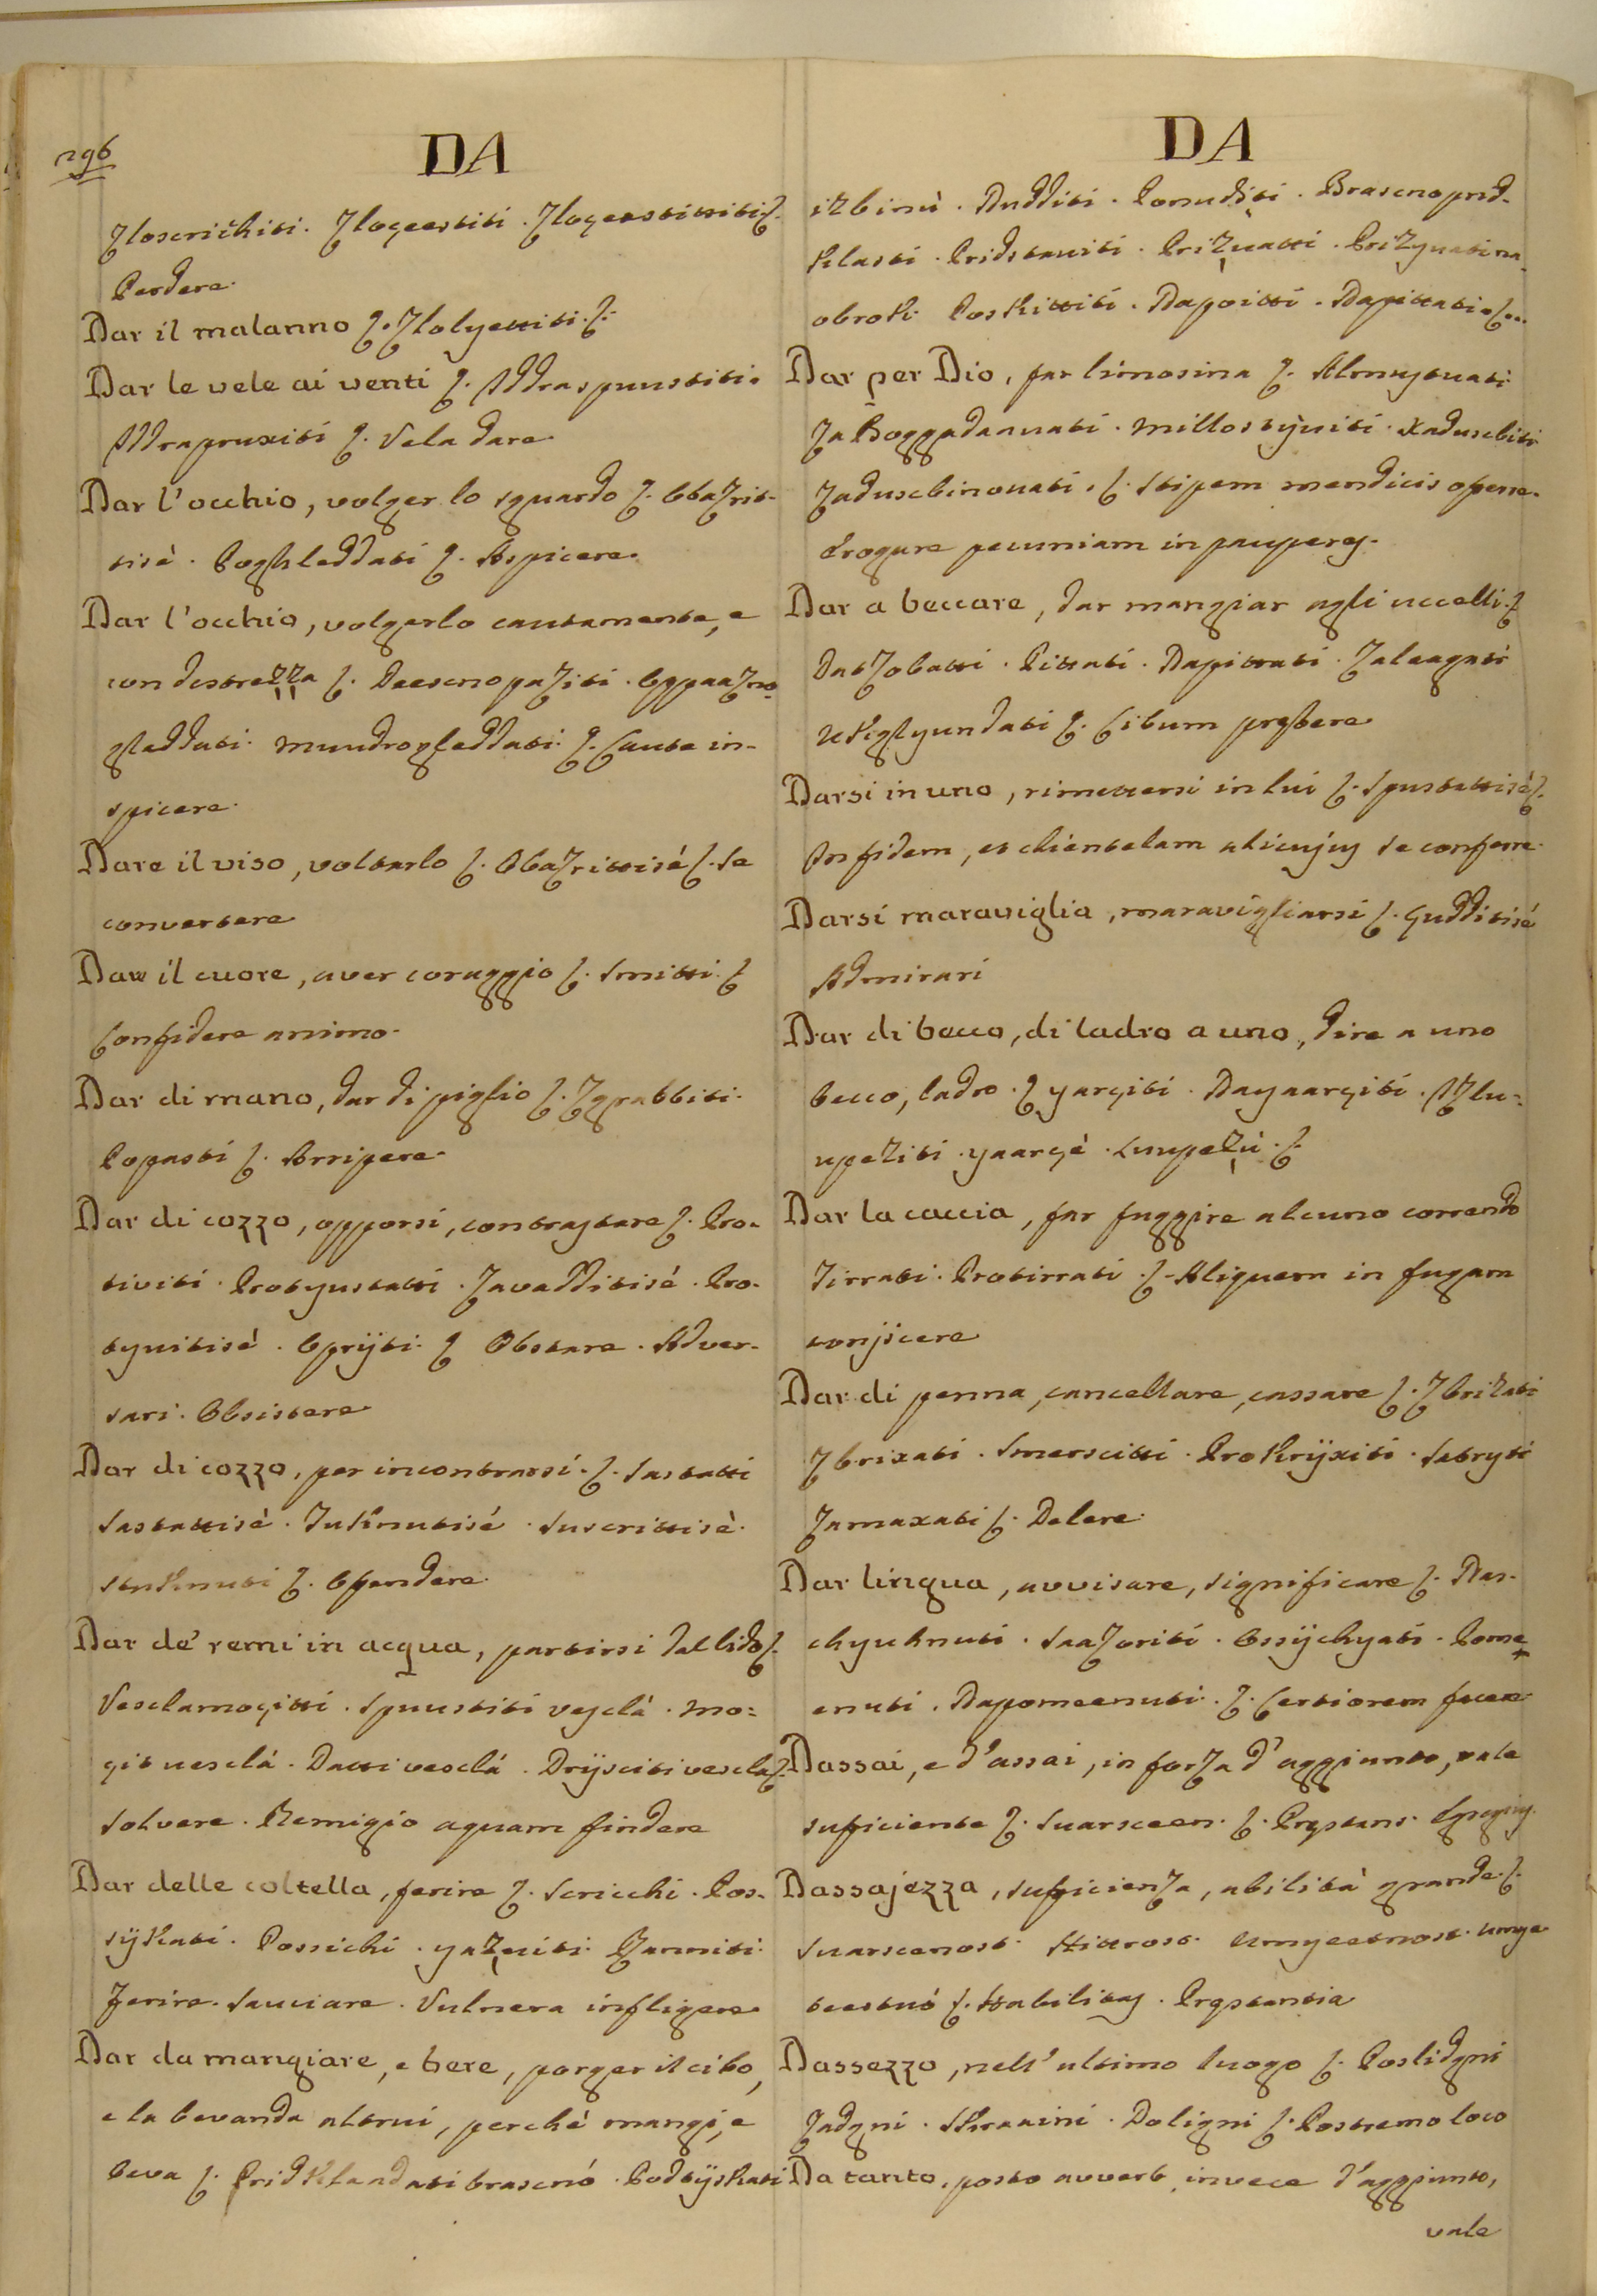 296
DA
Zloscrichiti. Zloçeestiti. Zloçeestittiti ʃ.
Perdere.
Dar il malanno ʃ. Zlolyettiti. ʃ.
Dar le vele ai venti ʃ. Iddraspuustiti.
Iddrapruxiti ʃ. Vela dare.
Dar l'occhio, volger lo sguardo ʃ. Obazrit-
tisè. Poghleddati ʃ. Aspicere.
Dar l'occhio, volgerlo cautamente, e
con destrezza ʃ. Deescnopaziti. Oppaazno-
gleddati. Muudrogleddati. ʃ. Caute in-
spicere.
Dare il viso, voltarlo ʃ. Obazrittisé ʃ. Se
convertere
Dare il cuore, aver coraggio ʃ. Smitti. ʃ
Confidere animo.
Dar di mano, dar di piglio ʃ. Zgrabbiti.
Popasti ʃ. Arripere.
Dar di cozzo, opporsi, contrastare ʃ. Pro-
tiviti. Protyustatti. Zavadditisé. Pro-
tyuitisé. Oprijti. ʃ Obstare. Adver-
sari. Obsistere
Dar di cozzo, per incontrarsi. ʃ. Sastatti
Sastattisè. Tuknutisé. Suscrittisè.
Stuknuti ʃ. Offendere.
Dar de' remi in acqua, partirsi dal lido ʃ.
Vesclamoçitti. Spuustiti vesclá. Mo-
çit vesclá. Datti vesclá. Drijsciti vescla ʃ.
Solvere. Remigio aquam findere
Dar delle coltella, ferire ʃ. Scricchi. Pos-
sijkati. Possichi. yazuiti. Ranniti.
Ferire. Sauciare. Vulnera infligere
Dar da mangiare, e bere, porger il cibo,
e la bevanda altrui, perché mangi, e
beva ʃ. Pridklaadati brascnó. Podtijskati
DA
izbinù. Nudditi. Ponuditi. Brascnoprid-
klasti. Pridstaviti. Prizuatti. Prizyuatina-
obrok. Poskittiti. Dapoitti. Dapittati ʃ.
Dar per Dio, far limosina ʃ. Almuystuati
Za Boggadaauati. Millostijuiti. Xadusebiti
Zadusebinouati. ʃ. Stipem mendicis opere.
Erogare pecuniam in pauperes.
Dar a beccare, dar mangiar agli uccelli. ʃ
Datzobatti. Pittati. Dapittati. Zaleagati
Ukiglyundati ʃ. Cibum prębere
Darsi in uno, rimettersi in lui ʃ. Spustattisé ʃ.
In fidem, et clientelam alicujus se conferre.
Darsi maraviglia, maravigliarsi ʃ. Çudditisé
Admirari
Dar di becco, di ladro a uno, dire a uno
becco, ladro. ʃ yarçiti. Nayaarçiti. Izlu-
upeziti. yaarçè. Luupezù. ʃ
Dar la caccia, far fuggire alcuno correndo
Tirrati. Protirrati. ʃ. Aliquem in fugam
conjicere
Dar di penna, cancellare, cassare ʃ. Zbrizati
Zbrixati. Smerscitti. Prokrijxiti. Satryti
Zamaxati ʃ. Delere.
Dar lingua, avvisare, significare ʃ. Nas-
chyuhnuti. Saazoriti. Ossijchyati. Pome-
enuti. Napomeenuti. ʃ. Certiorem facere
Dassai, e d'assai, in forza d'aggiunto, vale
suficiente ʃ. Suarsceen. ʃ. Pręstans. Egregius.
Dassajezza, suficienza, abilità grande. ʃ.
Suarscenost. Hittrost. Umyeetnost. Umye-
teestuó ʃ. Habilitas. Pręstantia
Dassezzo, nell'ultimo luogo ʃ. Poslidgni
Zadgni. Skraaini. Doligni ʃ. Postremo loco
Da tanto, posto avverb. invece d'aggiunto,
vale